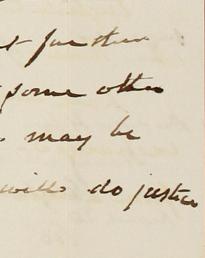 further
some other
may be
will do justice